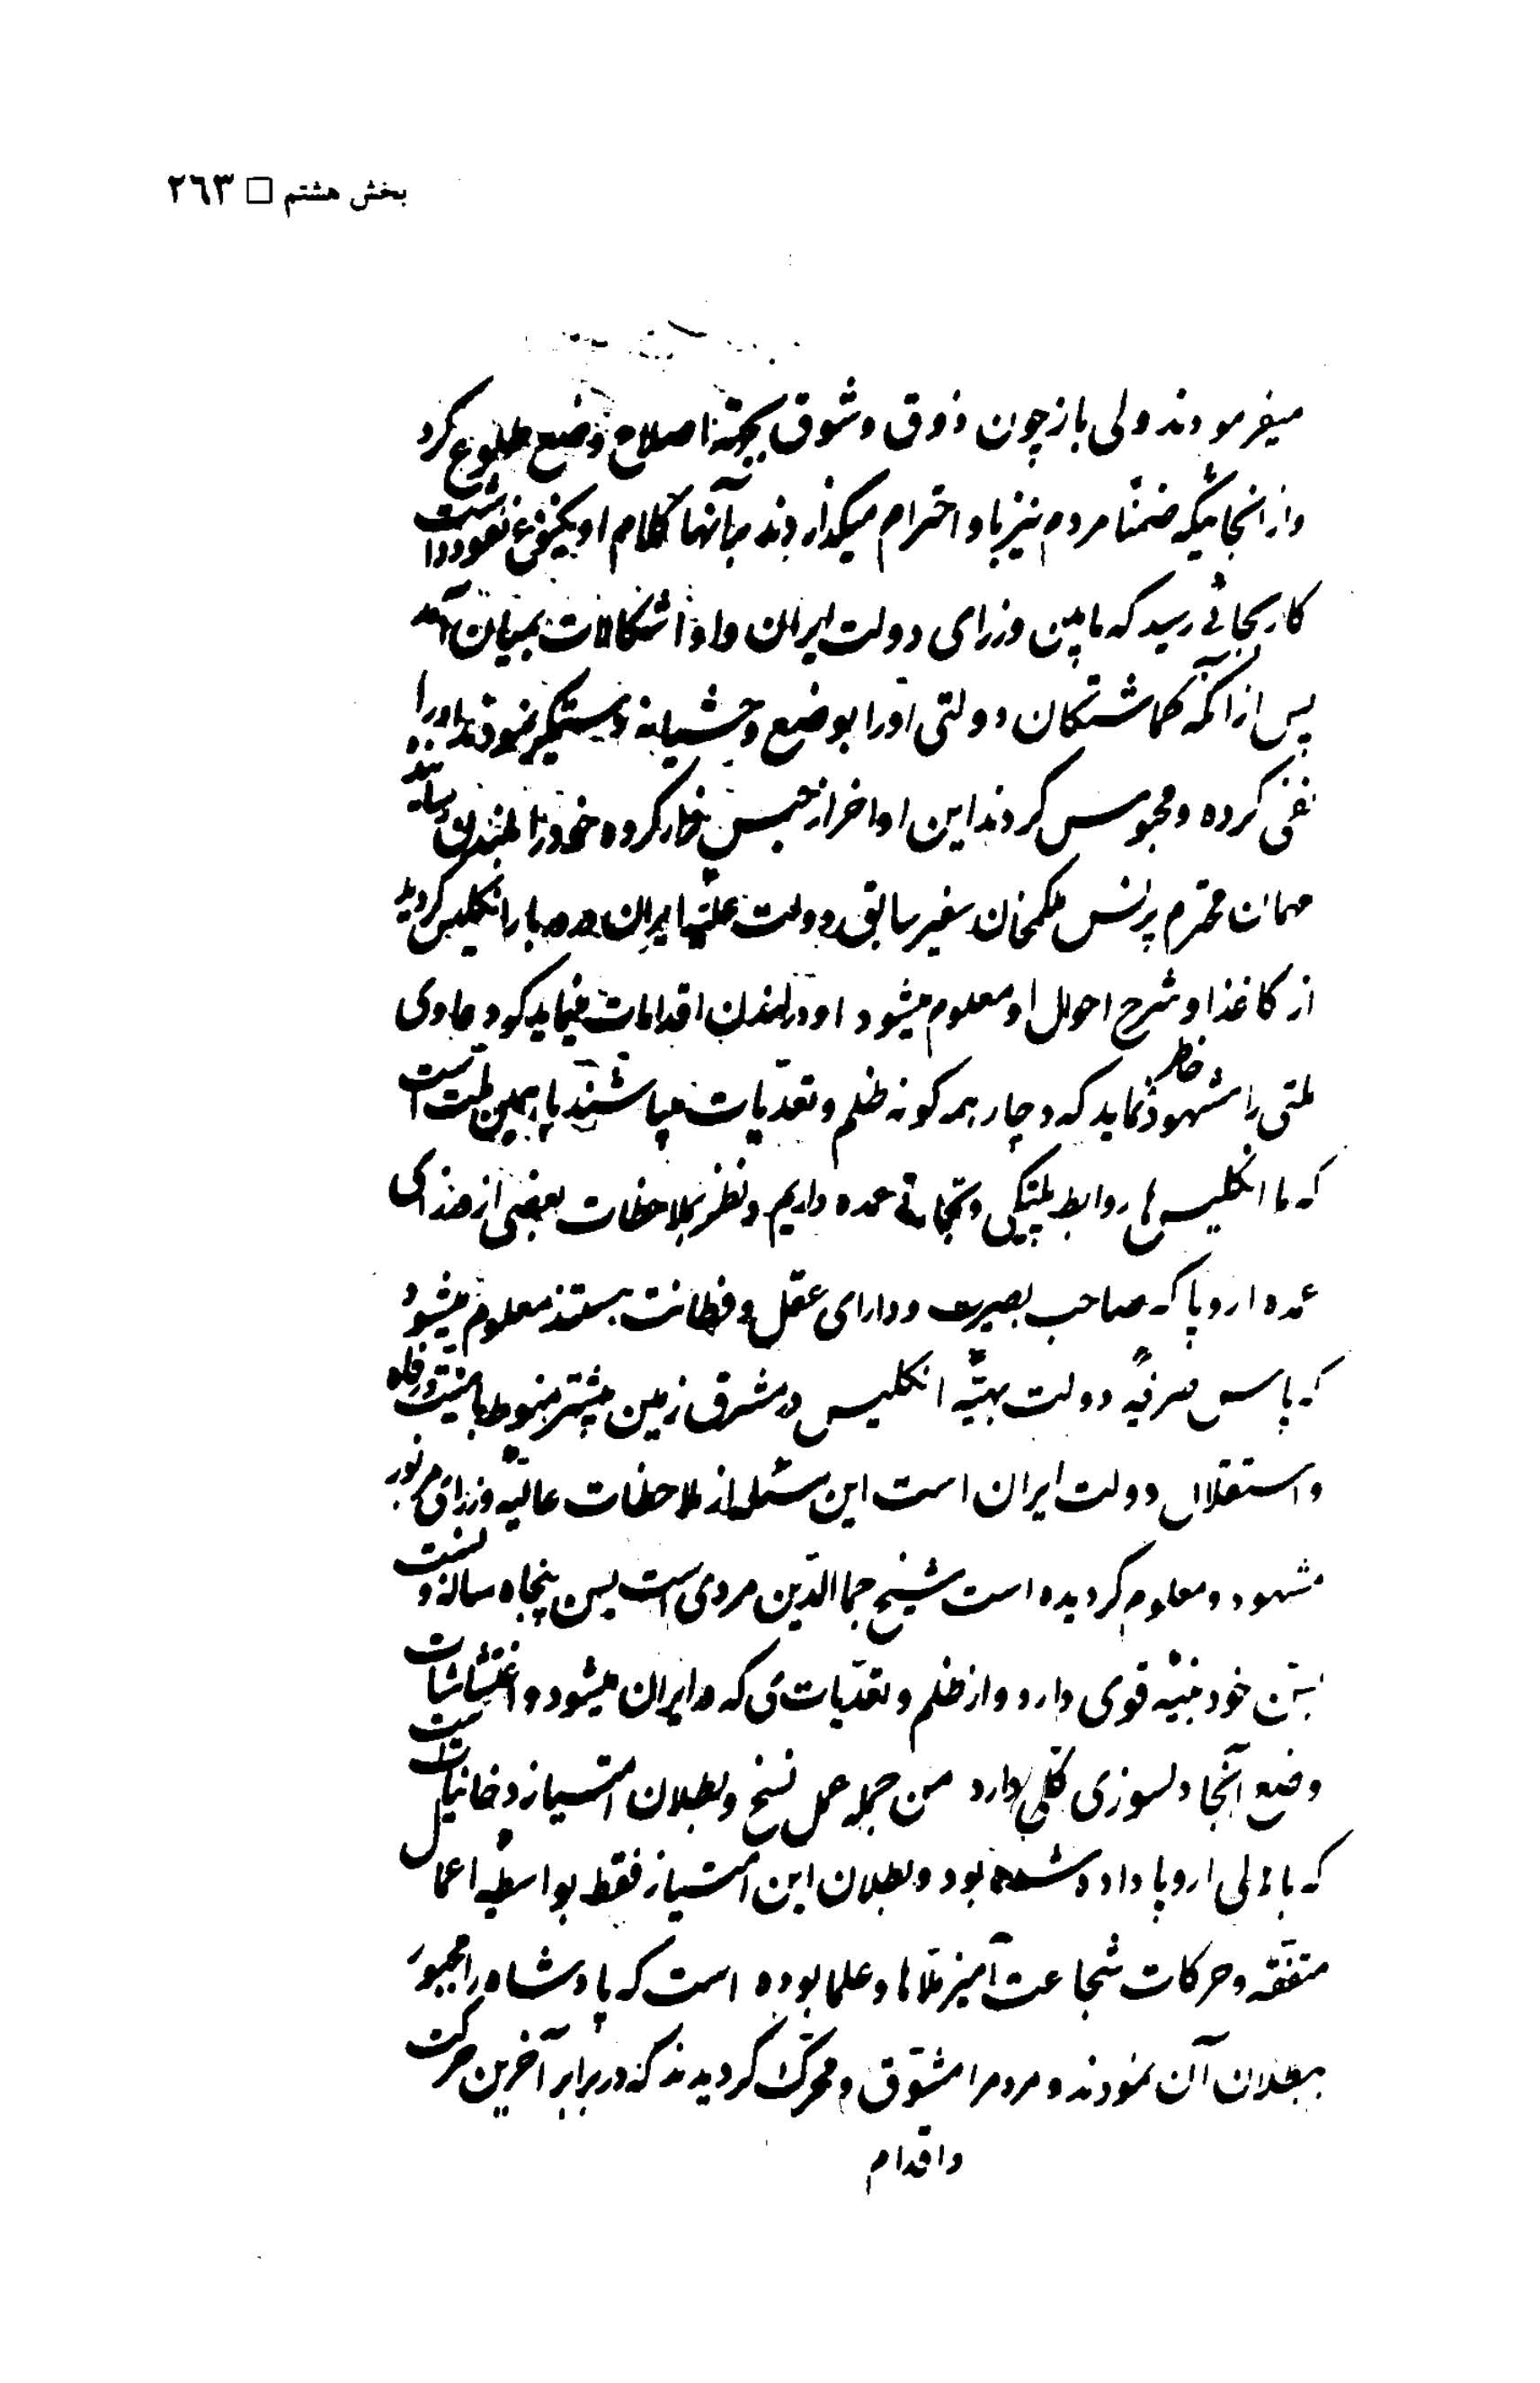 بخش هشتم □ ٢٦٣
میفرمودند ولی باز چون ذوق و شوق بجهة اصلاح وضع طلوع کرد
و از انجائیکه ضمناً مردم نیز باو احترام میکذاردند و بآنها کلام او یکنوع نفوذ داشت
کار بجائی رسید که مابین وزرای دولت ایران و او اشکالات بمیان آمد
پس از آنکه کماشتکان دولتی او را بوضع وحشیانه دستکیر نمودند او را
نفی کرده و محبوس کردند این اواخر از حبس فرار کرده خود را بلندن رسانید
مهمان محترم پرنس ملکمخان سفیر سابق دولت علیه ایران در دربار انکلیس کردید
از کاغذ او شرح احوال او معلوم میشود او در لندن اقدامات مینماید که دعاوی
ملتی را مشهود خاطر نماید که دچار همه کونه ظلم و تعدّیات میباشند با همین ملت است
که ما انکلیس ها روابط پلتیکی و تجارتی عمده داریم و نظر بملاحظات بعضی از وزرای
عمده اروپا که صاحب بصیرت و دارای عقل و فطانت هستند معلوم میشود
که پاس صرفهٔ دولت بهیّهٔ انکلیس در مشرق زمین بیشتر منوط بامنیت و رفاه
و استقلال دولت ایران است این مسئله از ملاحظات عالیّه وزرای مزبور
مشهود و معلوم کردیده است شیخ جمال الدّین مردی است بسن پنجاه ساله و نسبت
بسن خود بنیهٔ قوی دارد و از ظلم و تعدّیات ی که در ایران میشود و اغتشاشات
وضع آنجا دلسوزی کلی دارد من جمله عمل نسخ و بطلان امتیاز دخانیات است
که باهالی اروپا داده شده بود و بطلان این امتیاز فقط بواسطهٔ اعمال
متفقه و حرکات شجاعت آمیز ملّاها و علما بوده است که پادشاه را مجبور
ببطلان آن نمودند و مردم را مشوّق و محرّک کردیدند که در برابر آخرین حرکت
و اقدام